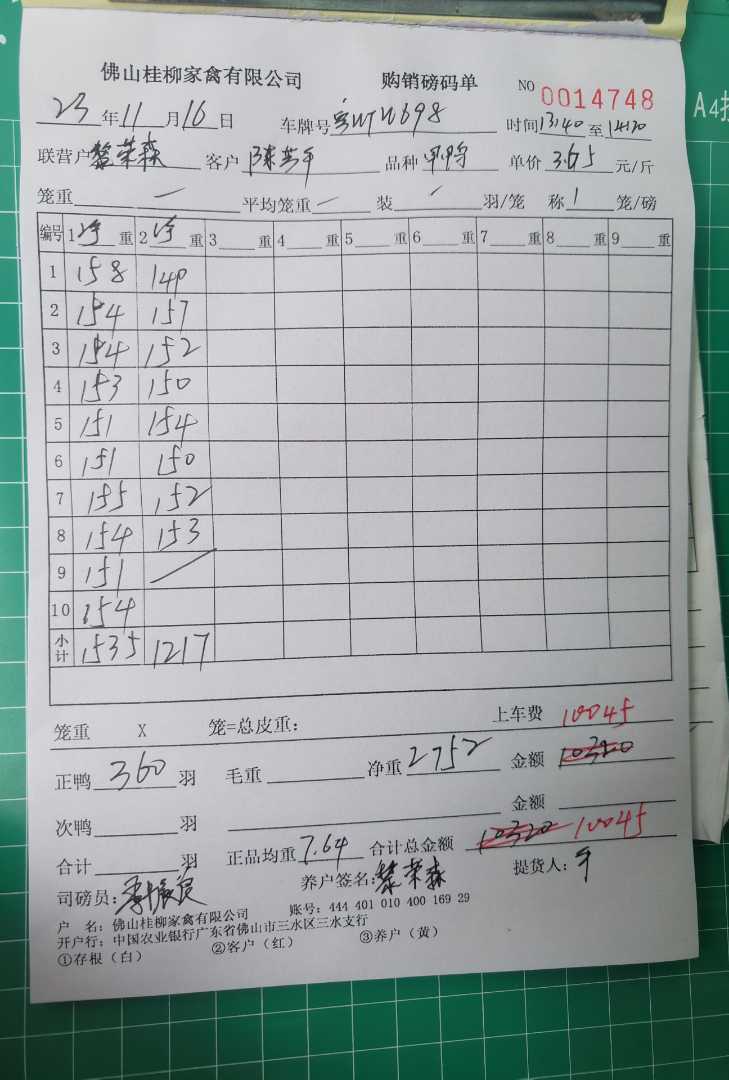 佛山桂柳家禽有限公司 购销磅码单 NO 0014748
23 年 11 月 16 日 车牌号 时间 13:40 至 14:20
联营户 黎荣森 客户 品种 单价 3.65 元/斤
笼重 — 平均笼重 — 装 / 羽/笼 称 1 笼/磅
编号 1 净 重 2 净 重 3 重 4 重 5 重 6 重 7 重 8 重 9 重
1 158 140
2 154 157
3 154 152
4 153 150
5 151 154
6 151 150
7 155 152
8 154 153
9 151
10 154
小计 1535 1217
笼重 X 笼=总皮重: 上车费 10045
正鸭 360 羽 毛重 净重 2752 金额 10320
次鸭 羽 金额
合计 羽 正品均重 7.64 合计总金额 10320 10045
司磅员: 养户签名: 黎荣森 提货人:
户 名: 佛山桂柳家禽有限公司 账号: 444 401 010 400 169 29
开户行: 中国农业银行广东省佛山市三水区三水支行
①存根(白) ②客户(红) ③养户(黄)
A4